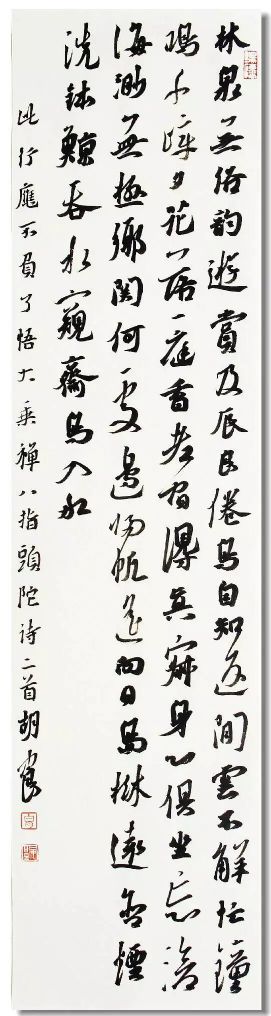 林泉無俗韵遊賞及辰良倦鳥自知返間雲不解忙鐘
鳴千嶂夕花落一庭香得真寂身心俱坐忘滄
海渺無極鄉關何處邊揚帆遙向日島樹遠含煙
洗鉢鯨吞水窺齋鳥入船
此行應不負了悟大乘禪八指頭陀詩二首胡